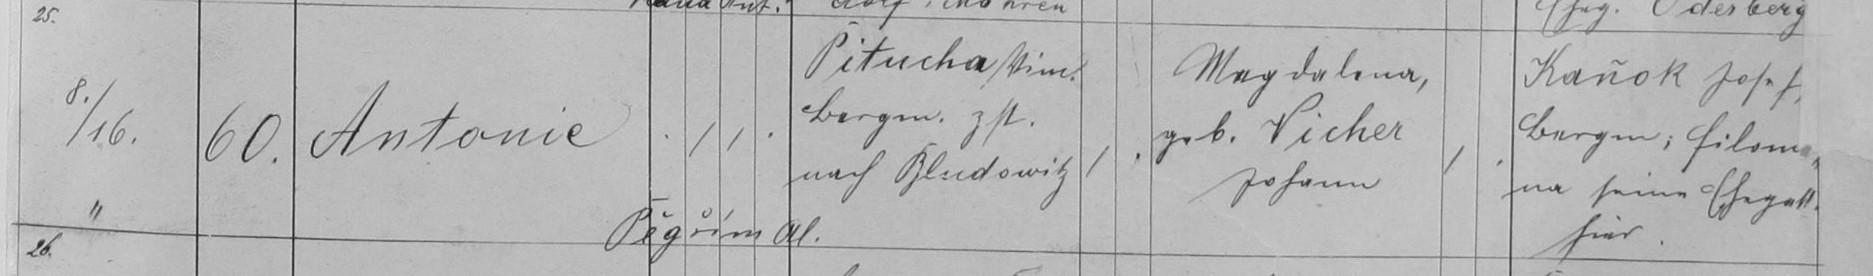 25.
Eheg. Oderberg
8./16. 60. Antonie
Pitucha Vinc.
Bergm. zst.
nach Bludowitz
Magdalena,
geb. Vicher
Johann
Kaňok Josef,
Bergm; Filome-
na seine Ehegatt.
hier.
"
Pěgřím Al.
26.